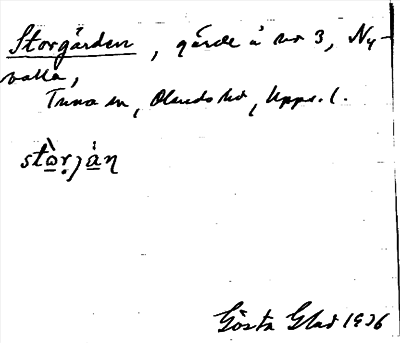 Storgården, gärde å nr 3, Ny-
valla,
Tuna sn, Olands hd, Upps. l.
stò̱ṛjȧ̱n
Gösta Glad 1936